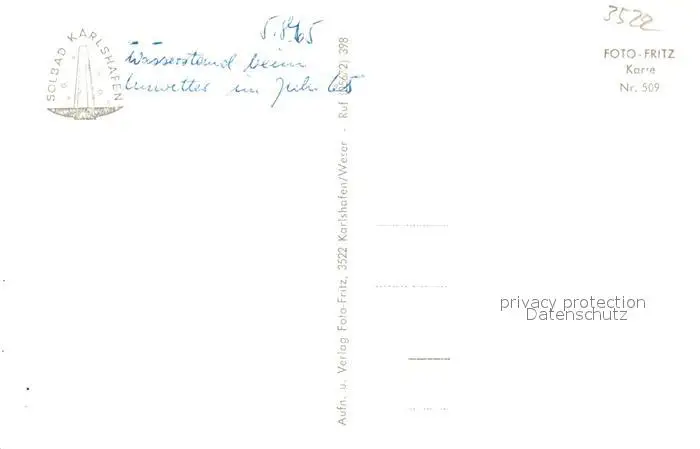 3522
SOLBAD KARLSHAFEN
5.8.65
Wasserstand beim
Unwetter im Juli 65
FOTO-FRITZ
Karte
Nr. 509
Aufn. u. Verlag Foto-Fritz, 3522 Karlshafen/Weser - Ruf (05672) 398
privacy protection
Datenschutz